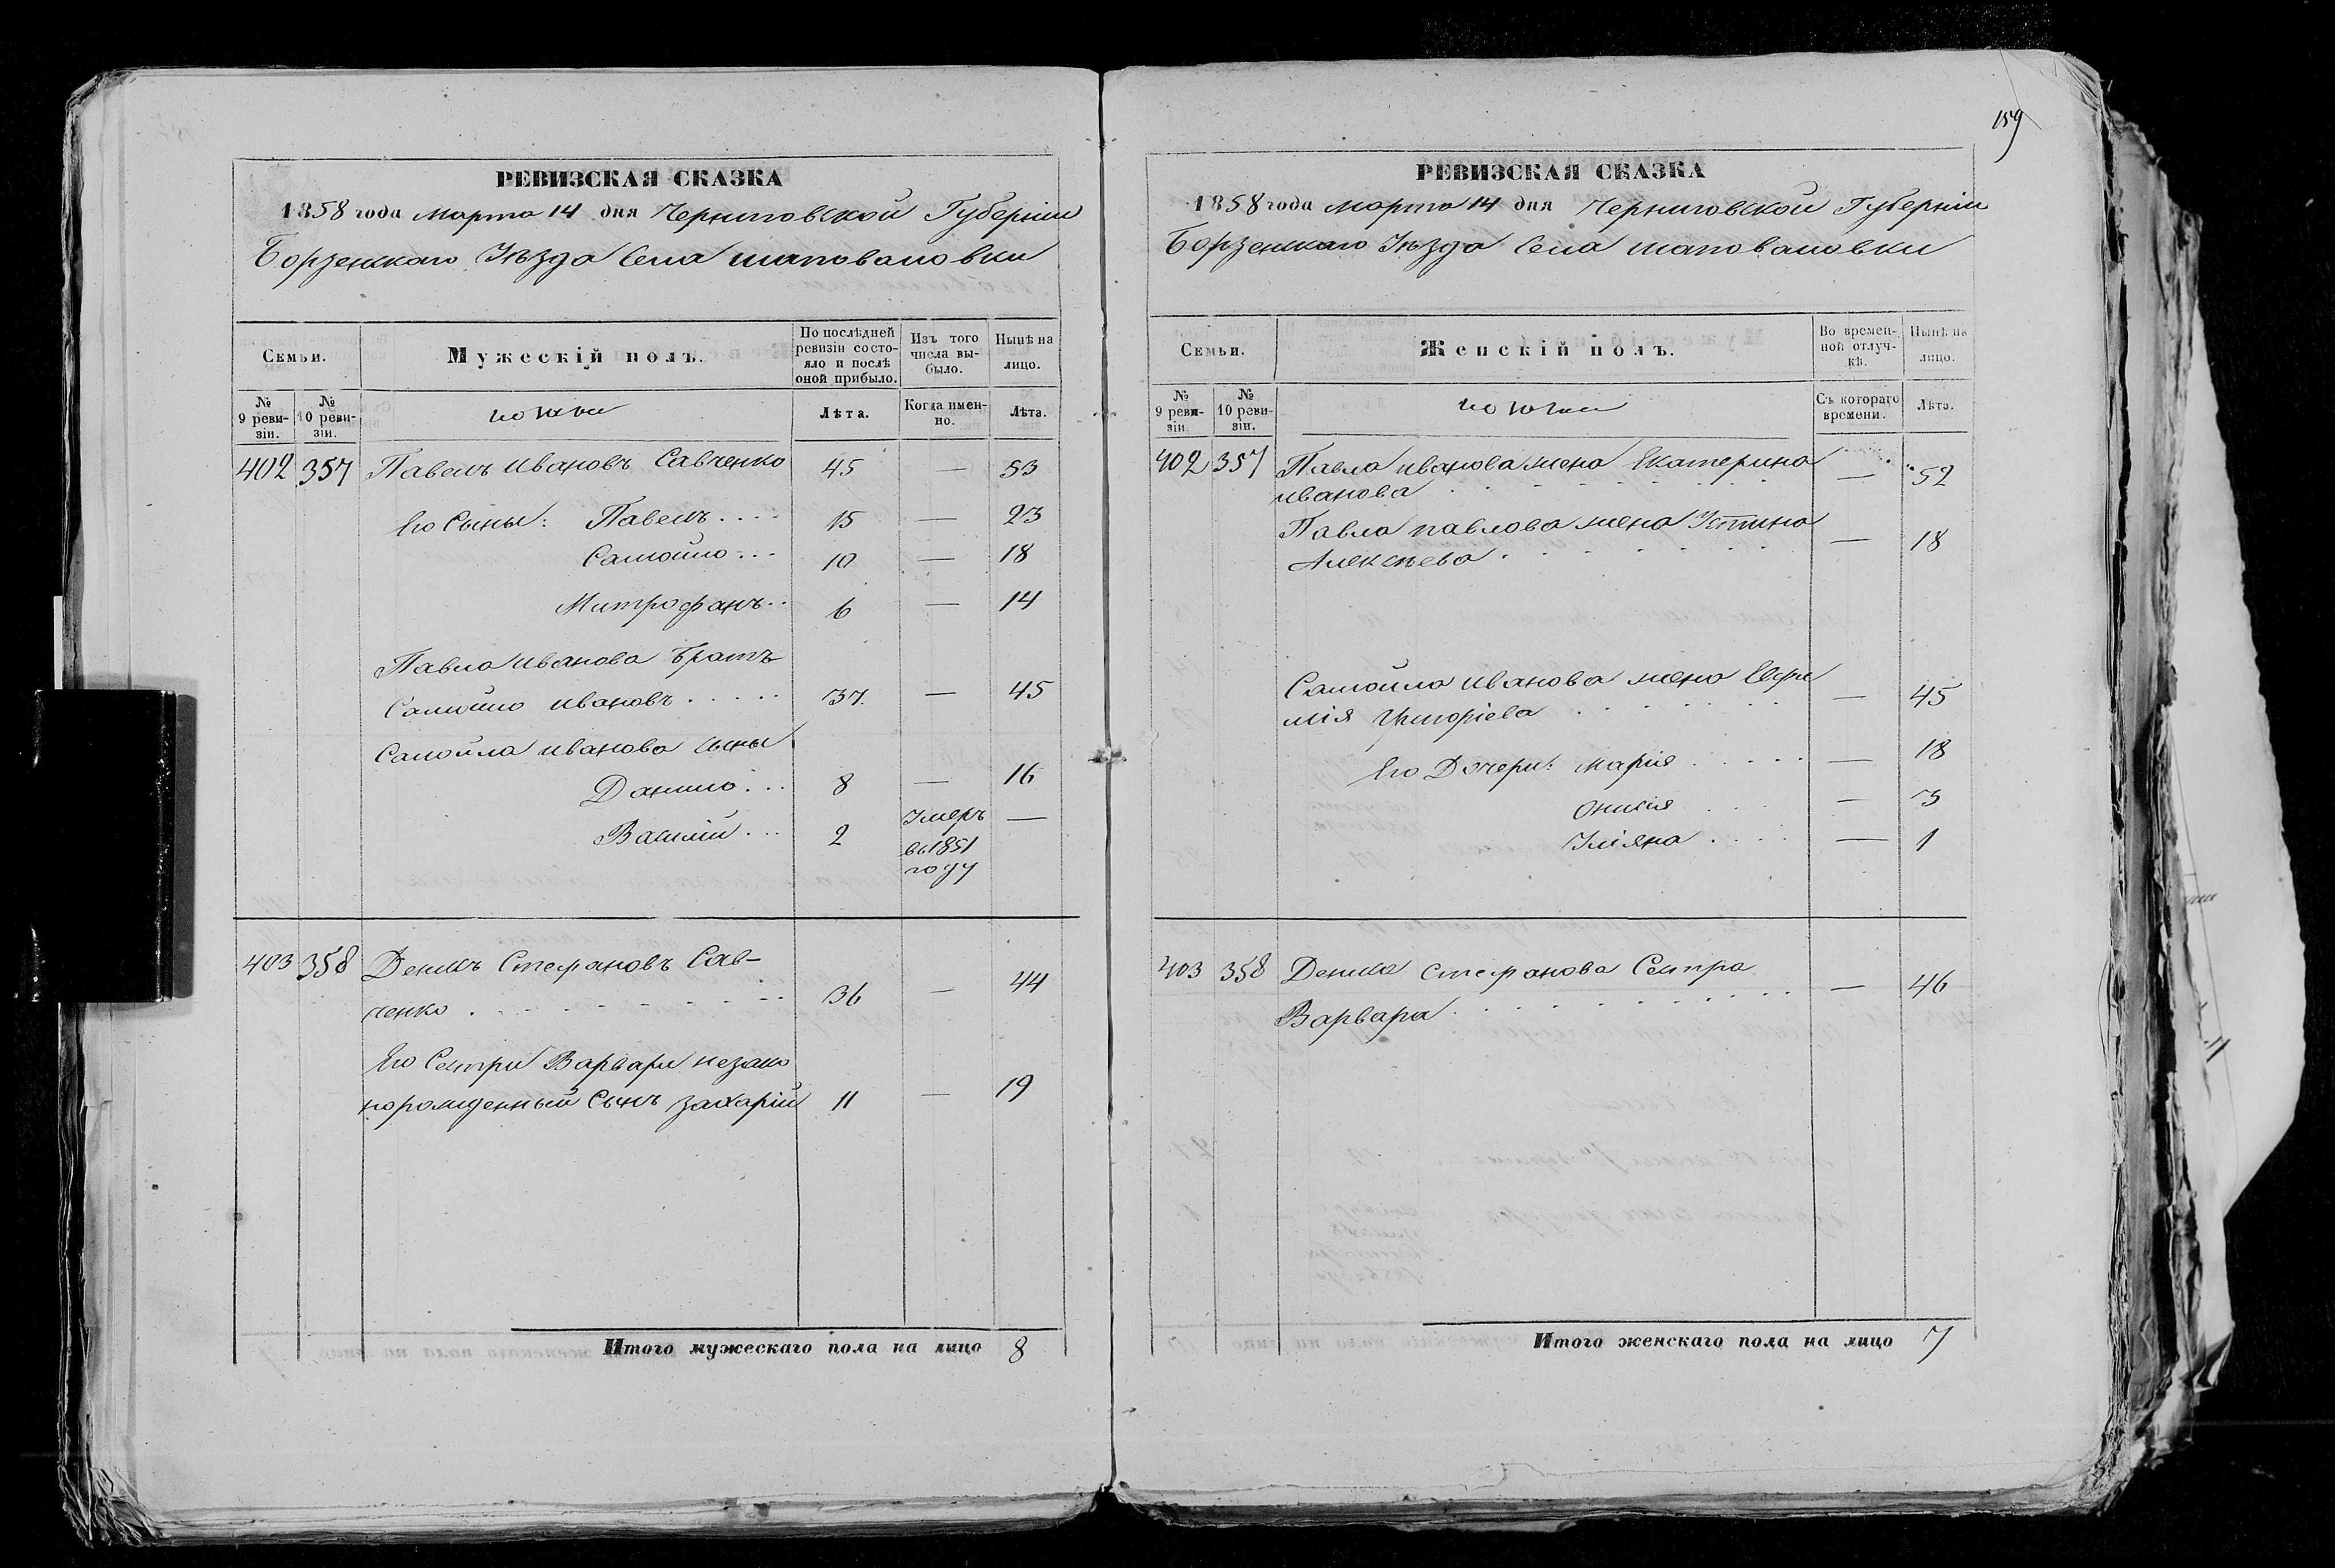 159
РЕВИЗСКАЯ СКАЗКА
1858 года Марта 14 дня Черниговской Губерніи
Борзенскаго Уѣзда Села Шаповаловки
Семьи.
Мужескій полъ.
По послѣдней ревизіи состояло и послѣ оной прибыло.
Изъ того числа выбыло.
Нынѣ на лицо.
№ 9 ревизіи.
№ 10 ревизіи.
Лѣта.
Когда именно.
Лѣта.
402 357 Павелъ Ивановъ Савченко 45 — 53
Его Сыны: Павелъ.... 15 — 23
Самойло... 10 — 18
Митрофанъ.. 6 — 14
Павла Иванова братъ
Самойло Ивановъ..... 37. — 45
Самойла Иванова сыны
Данило... 8 — 16
Василій... 2 Умеръ —
въ 1851
году
403 358 Денисъ Стефановъ Сав-
ченко......... 36 — 44
Его Сестры Варвары незако
норожденный Сынъ Захарій 11 — 19
Итого мужескаго пола на лицо 8
РЕВИЗСКАЯ СКАЗКА
1858 года Марта 14 дня Черниговской Губерніи
Борзенскаго Уѣзда Села Шаповаловки
Семьи.
Женскій полъ.
Во временной отлучкѣ.
Нынѣ на лицо.
№ 9 ревизіи.
№ 10 ревизіи.
Съ котораго времени.
Лѣта.
402 357 Павла Иванова жена Екатерина
Иванова........ — 52
Павла Павлова жена Устина
Алексѣева....... — 18
Самойла Иванова жена Евфи
мія Григоріева....... — 45
Его Дочери: Марія..... — 18
Онисія.... — 3
Уліяна.... — 1
403 358 Дениса Стефанова Сестра
Варвара......... — 46
Итого женскаго пола на лицо 7